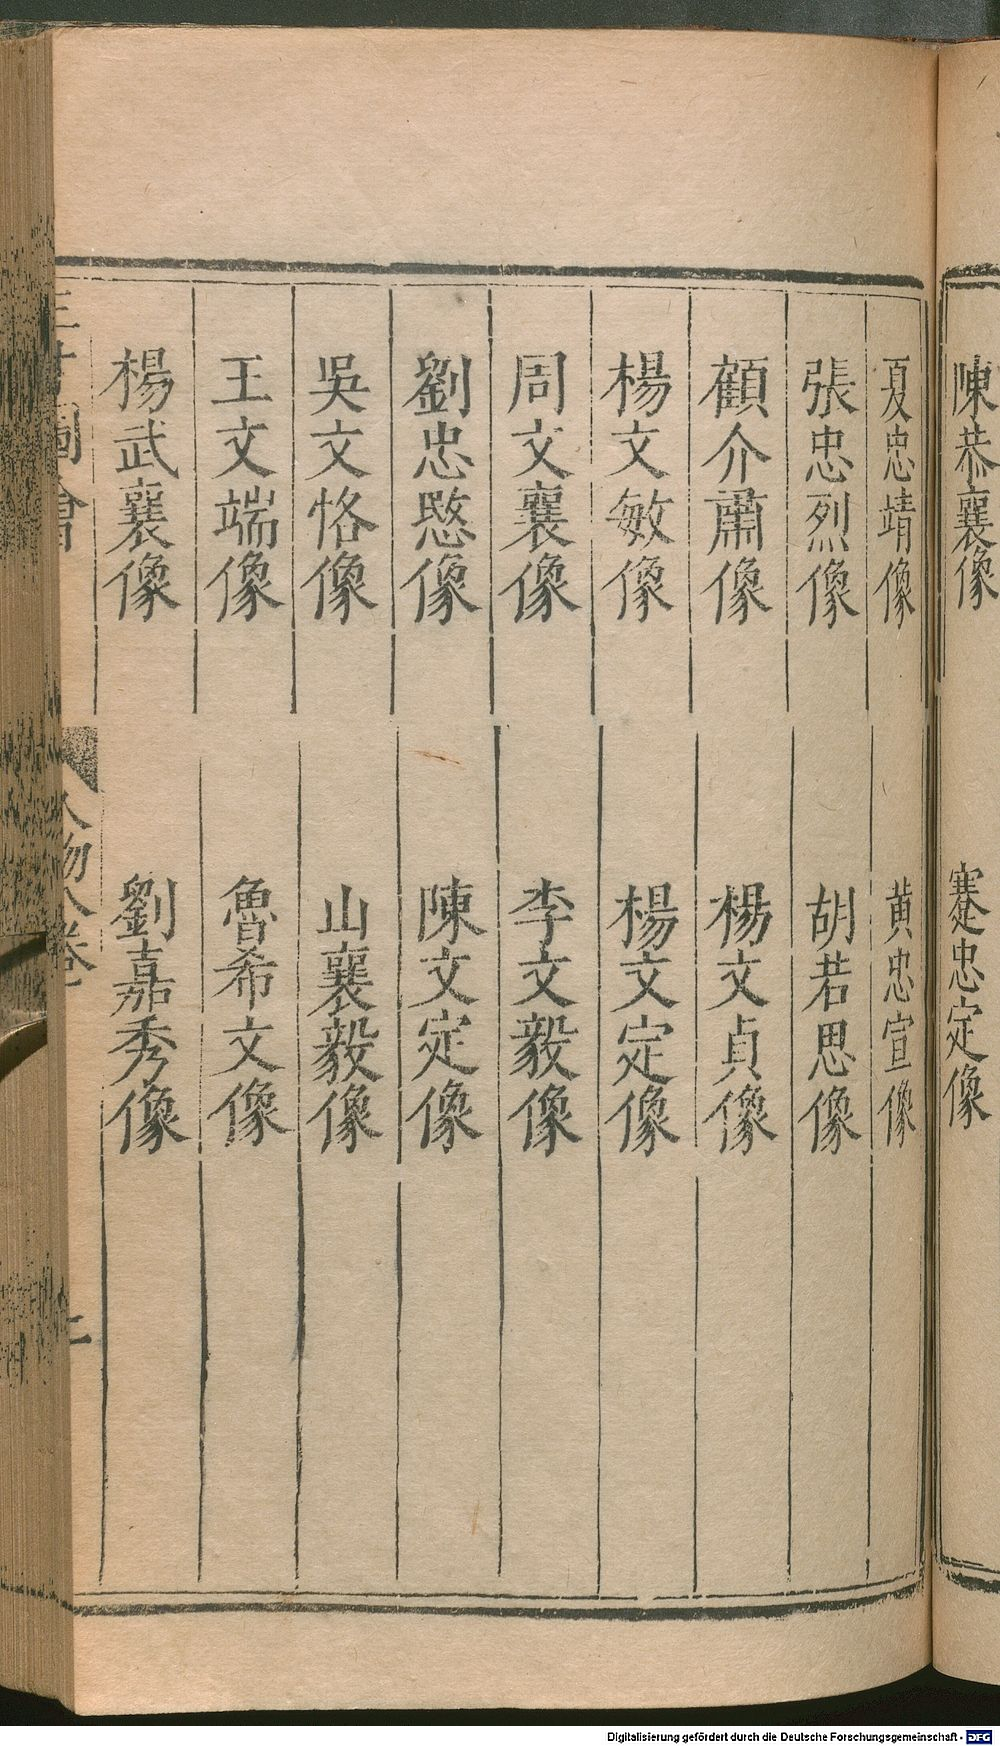 陳恭襄像
蹇忠定像
夏忠靖像
黄忠宣像
張忠烈像
胡若思像
顧介肅像
楊文貞像
楊文敏像
楊文定像
周文襄像
李文毅像
劉忠愍像
陳文定像
吳文恪像
山襄毅像
王文端像
魯希文像
楊武襄像
劉嘉秀像
圖會
人物八卷
Digitalisierung gefördert durch die Deutsche Forschungsgemeinschaft - DFG